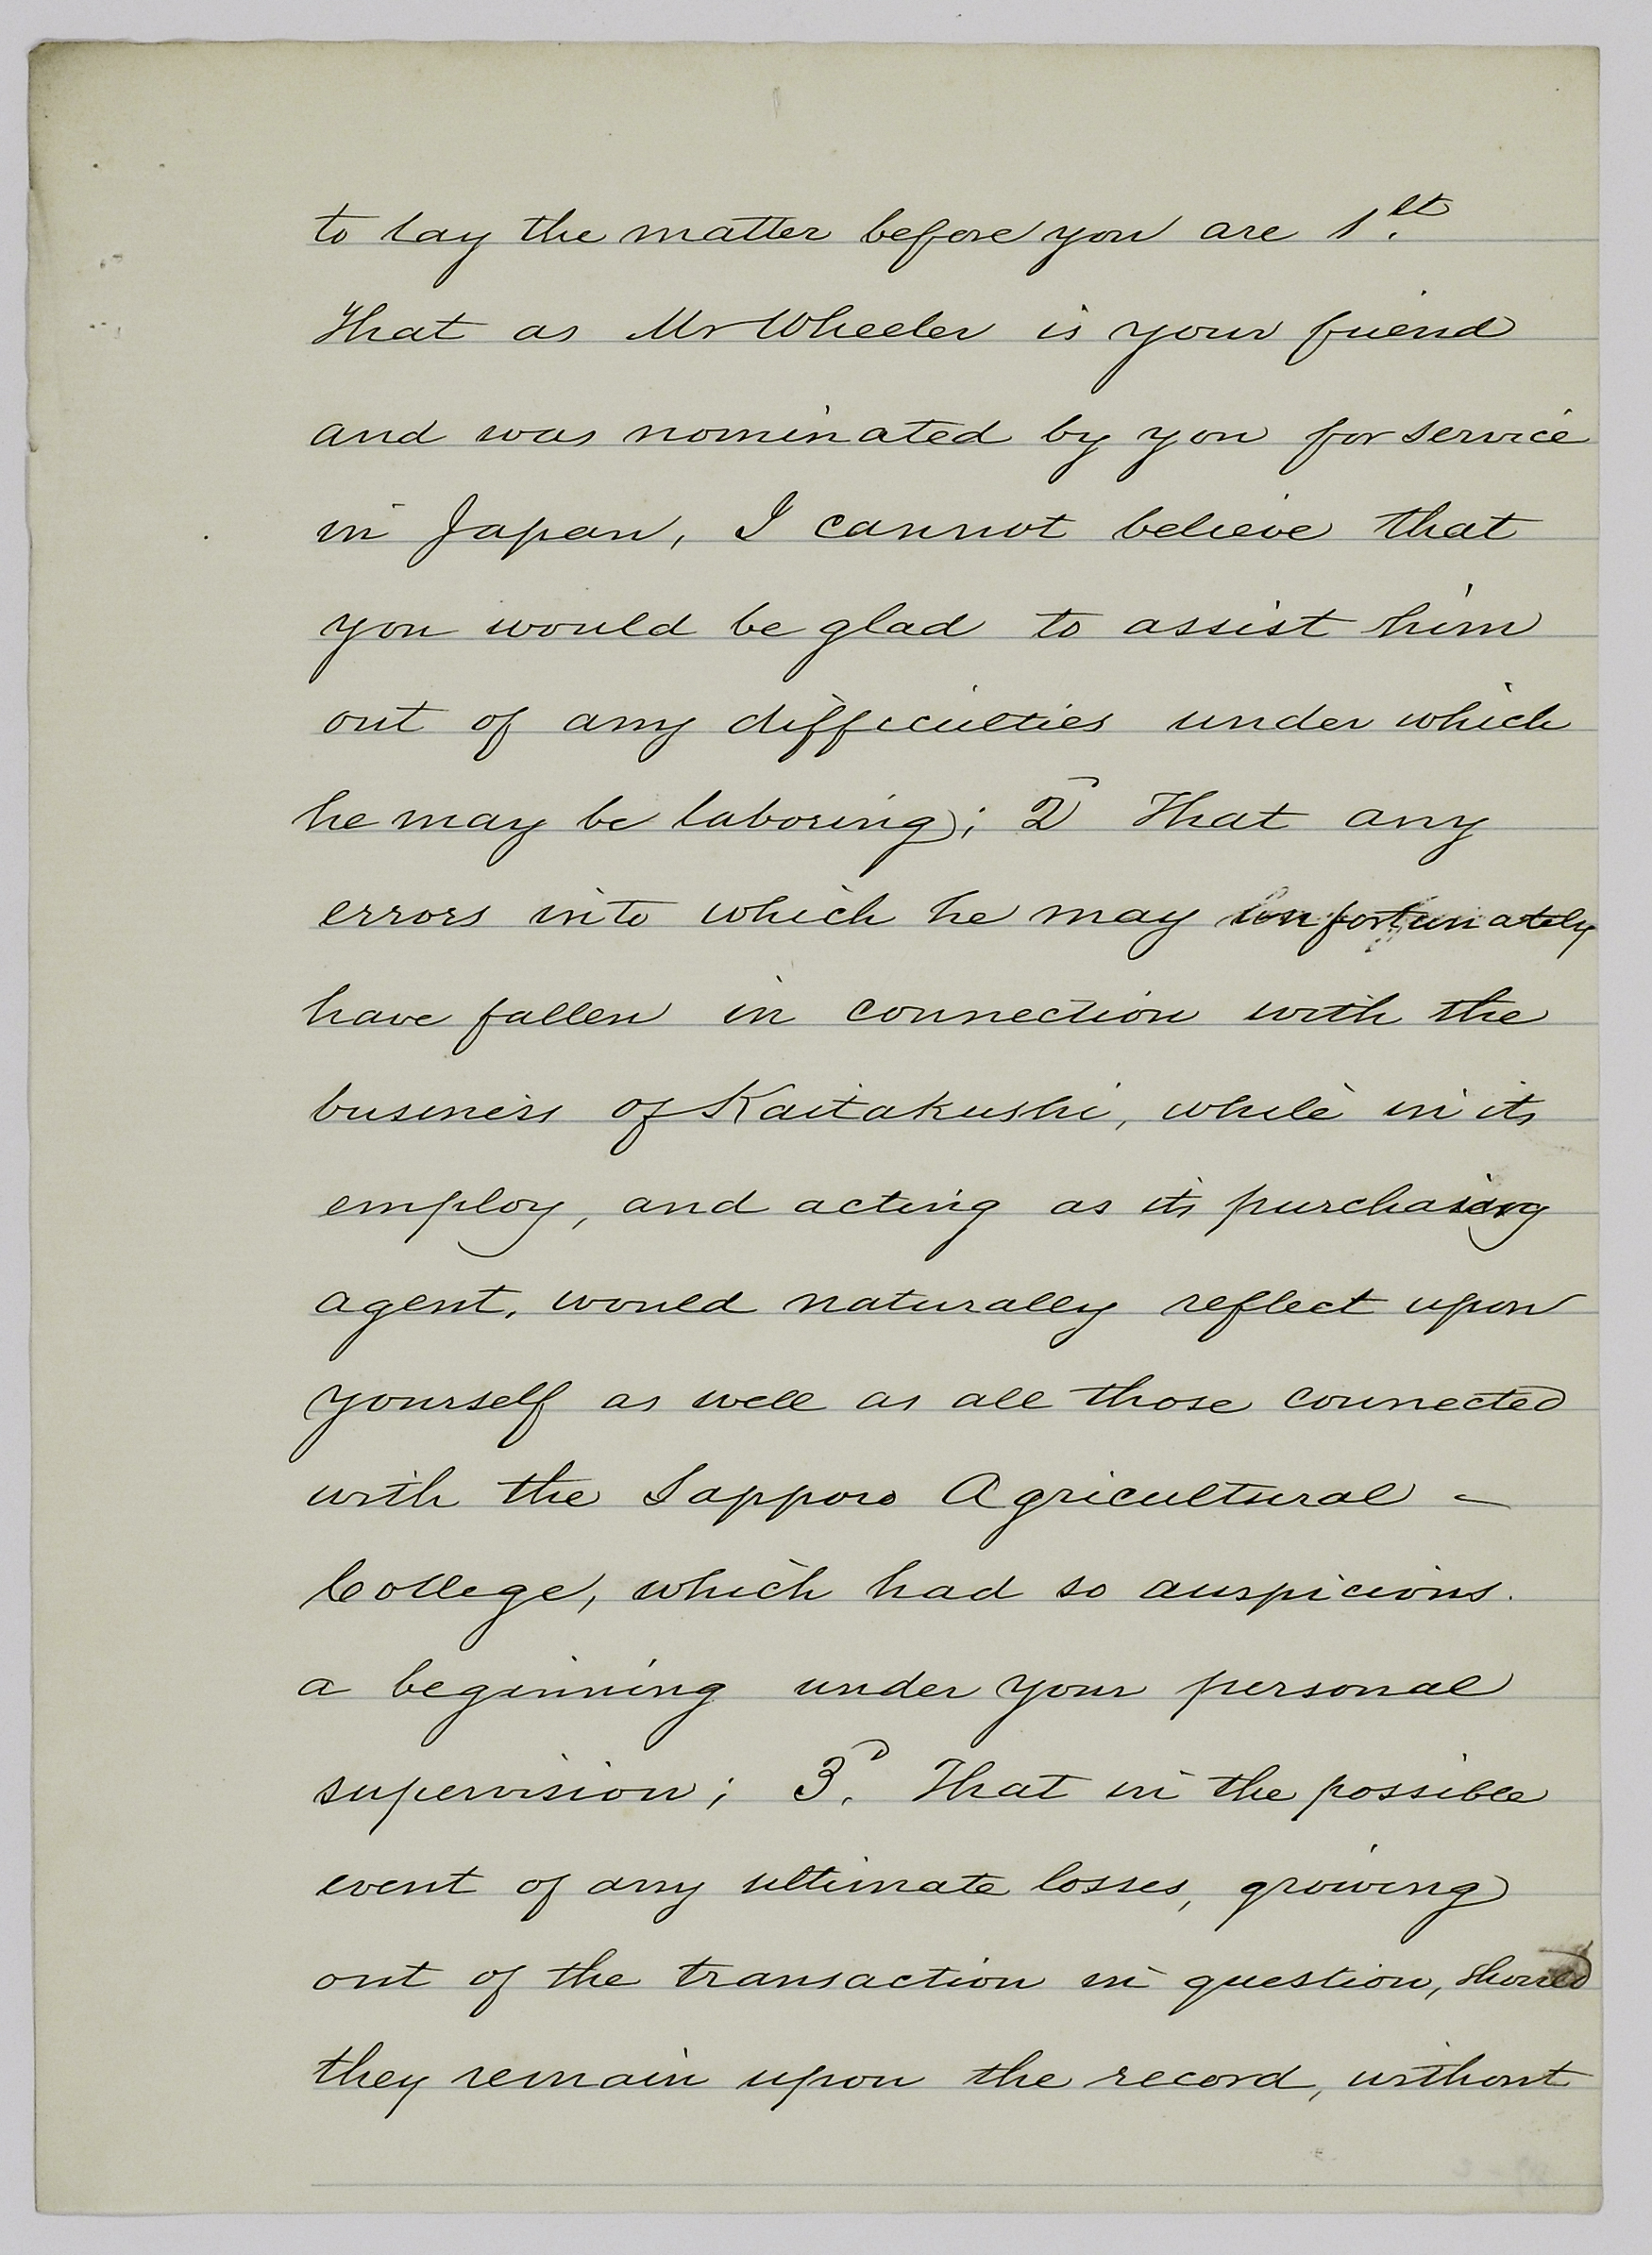 to lay the matter before you are 1st.
That as Mr Wheeler is your friend
and was nominated by you for service
in Japan, I cannot believe that
you would be glad to assist him
out of any difficulties under which
he may be laboring; 2 That any
errors into which he may unfortunately
have fallen in connection with the
business of Kaitakushi, while in its
employ, and acting as its purchasing
agent, would naturally reflect upon
yourself as well as all those connected
with the Sapporo Agricultural -
College, which had so auspicious.
a beginning under your personal
supervision; 3d. That in the possible
event of any ultimate losses, growing
out of the transaction in question, should
they remain upon the record, without